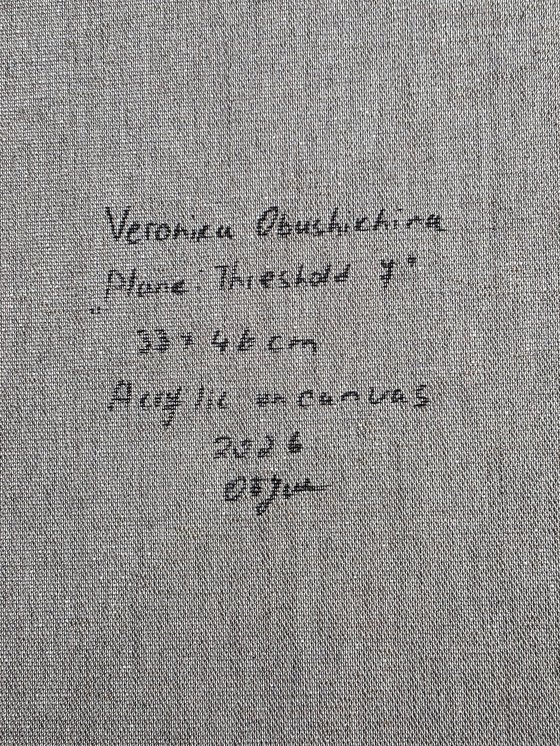 Veronika Obushichina
„Plane: Threshold
33 × 46 cm
Acrylic on canvas
2026